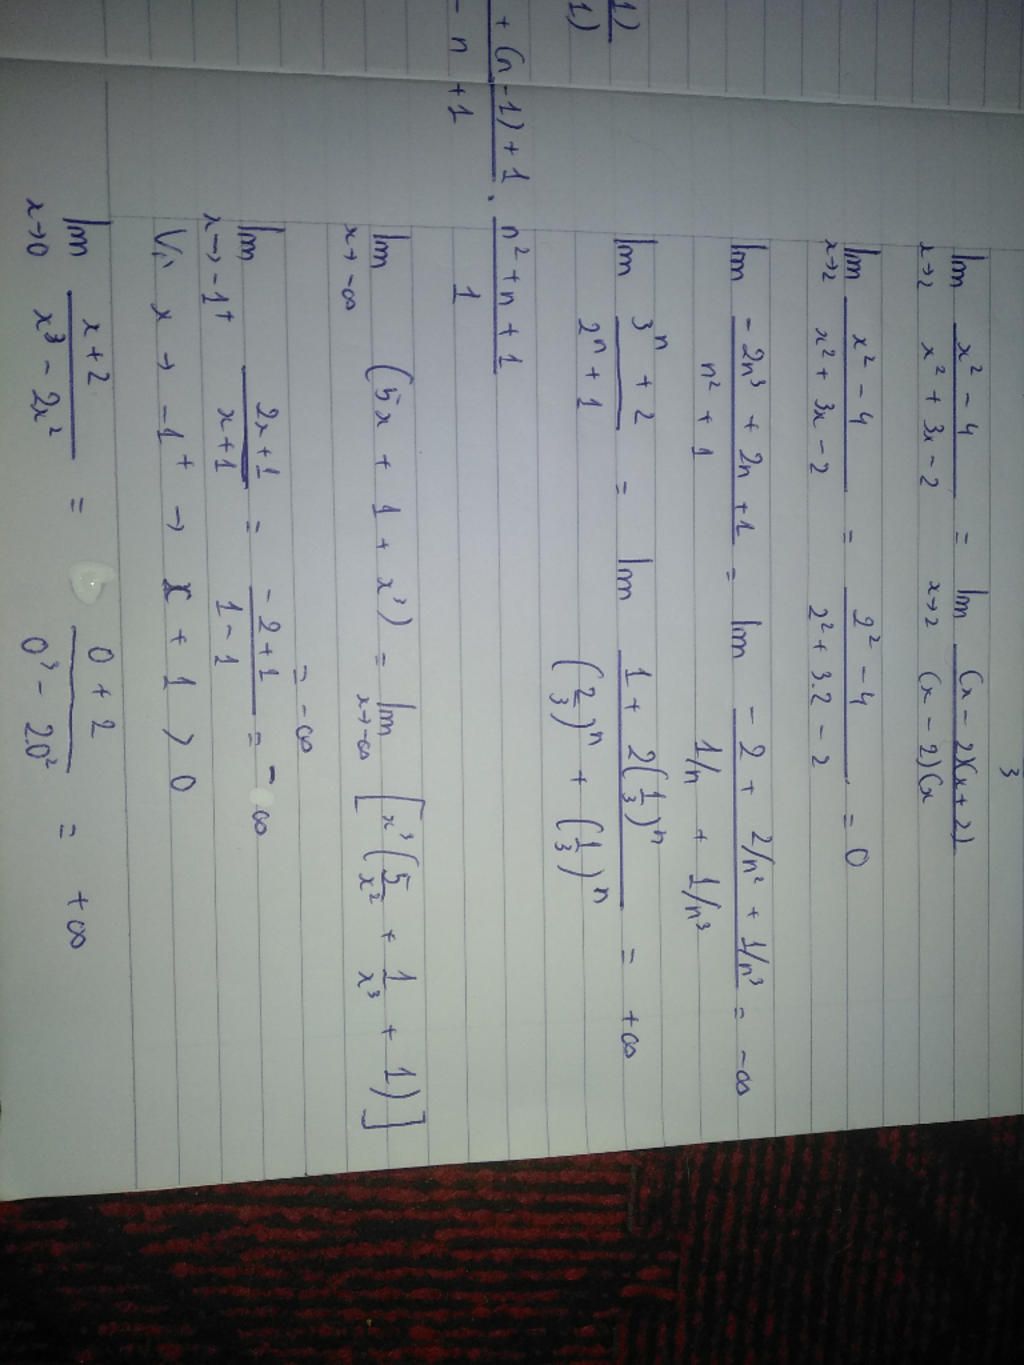 3
lim x→2 (x² - 4)/(x² + 3x - 2) = lim x→2 (x - 2)(x + 2)/(x - 2)(x
lim x→2 (x² - 4)/(x² + 3x - 2) = (2² - 4)/(2² + 3.2 - 2) = 0
lim (- 2n³ + 2n + 1)/(n² + 1) = lim (- 2 + 2/n² + 1/n³)/(1/n + 1/n³) = -∞
1)
1)
lim (3ⁿ + 2)/(2ⁿ + 1) = lim (1 + 2(1/3)ⁿ)/((2/3)ⁿ + (1/3)ⁿ) = +∞
+ (n - 1) + 1 . n² + n + 1
- n + 1 1
lim x→ -∞ (5x + 1 + x³) = lim x→-∞ [x³(5/x² + 1/x³ + 1)]
= -∞
lim x→ -1⁺ (2x+1)/(x+1) = (-2+1)/(1-1) = -∞
Vì x → -1⁺ → x + 1 > 0
lim x→0 (x+2)/(x³ - 2x²) = (0 + 2)/(0³ - 2.0²) = +∞